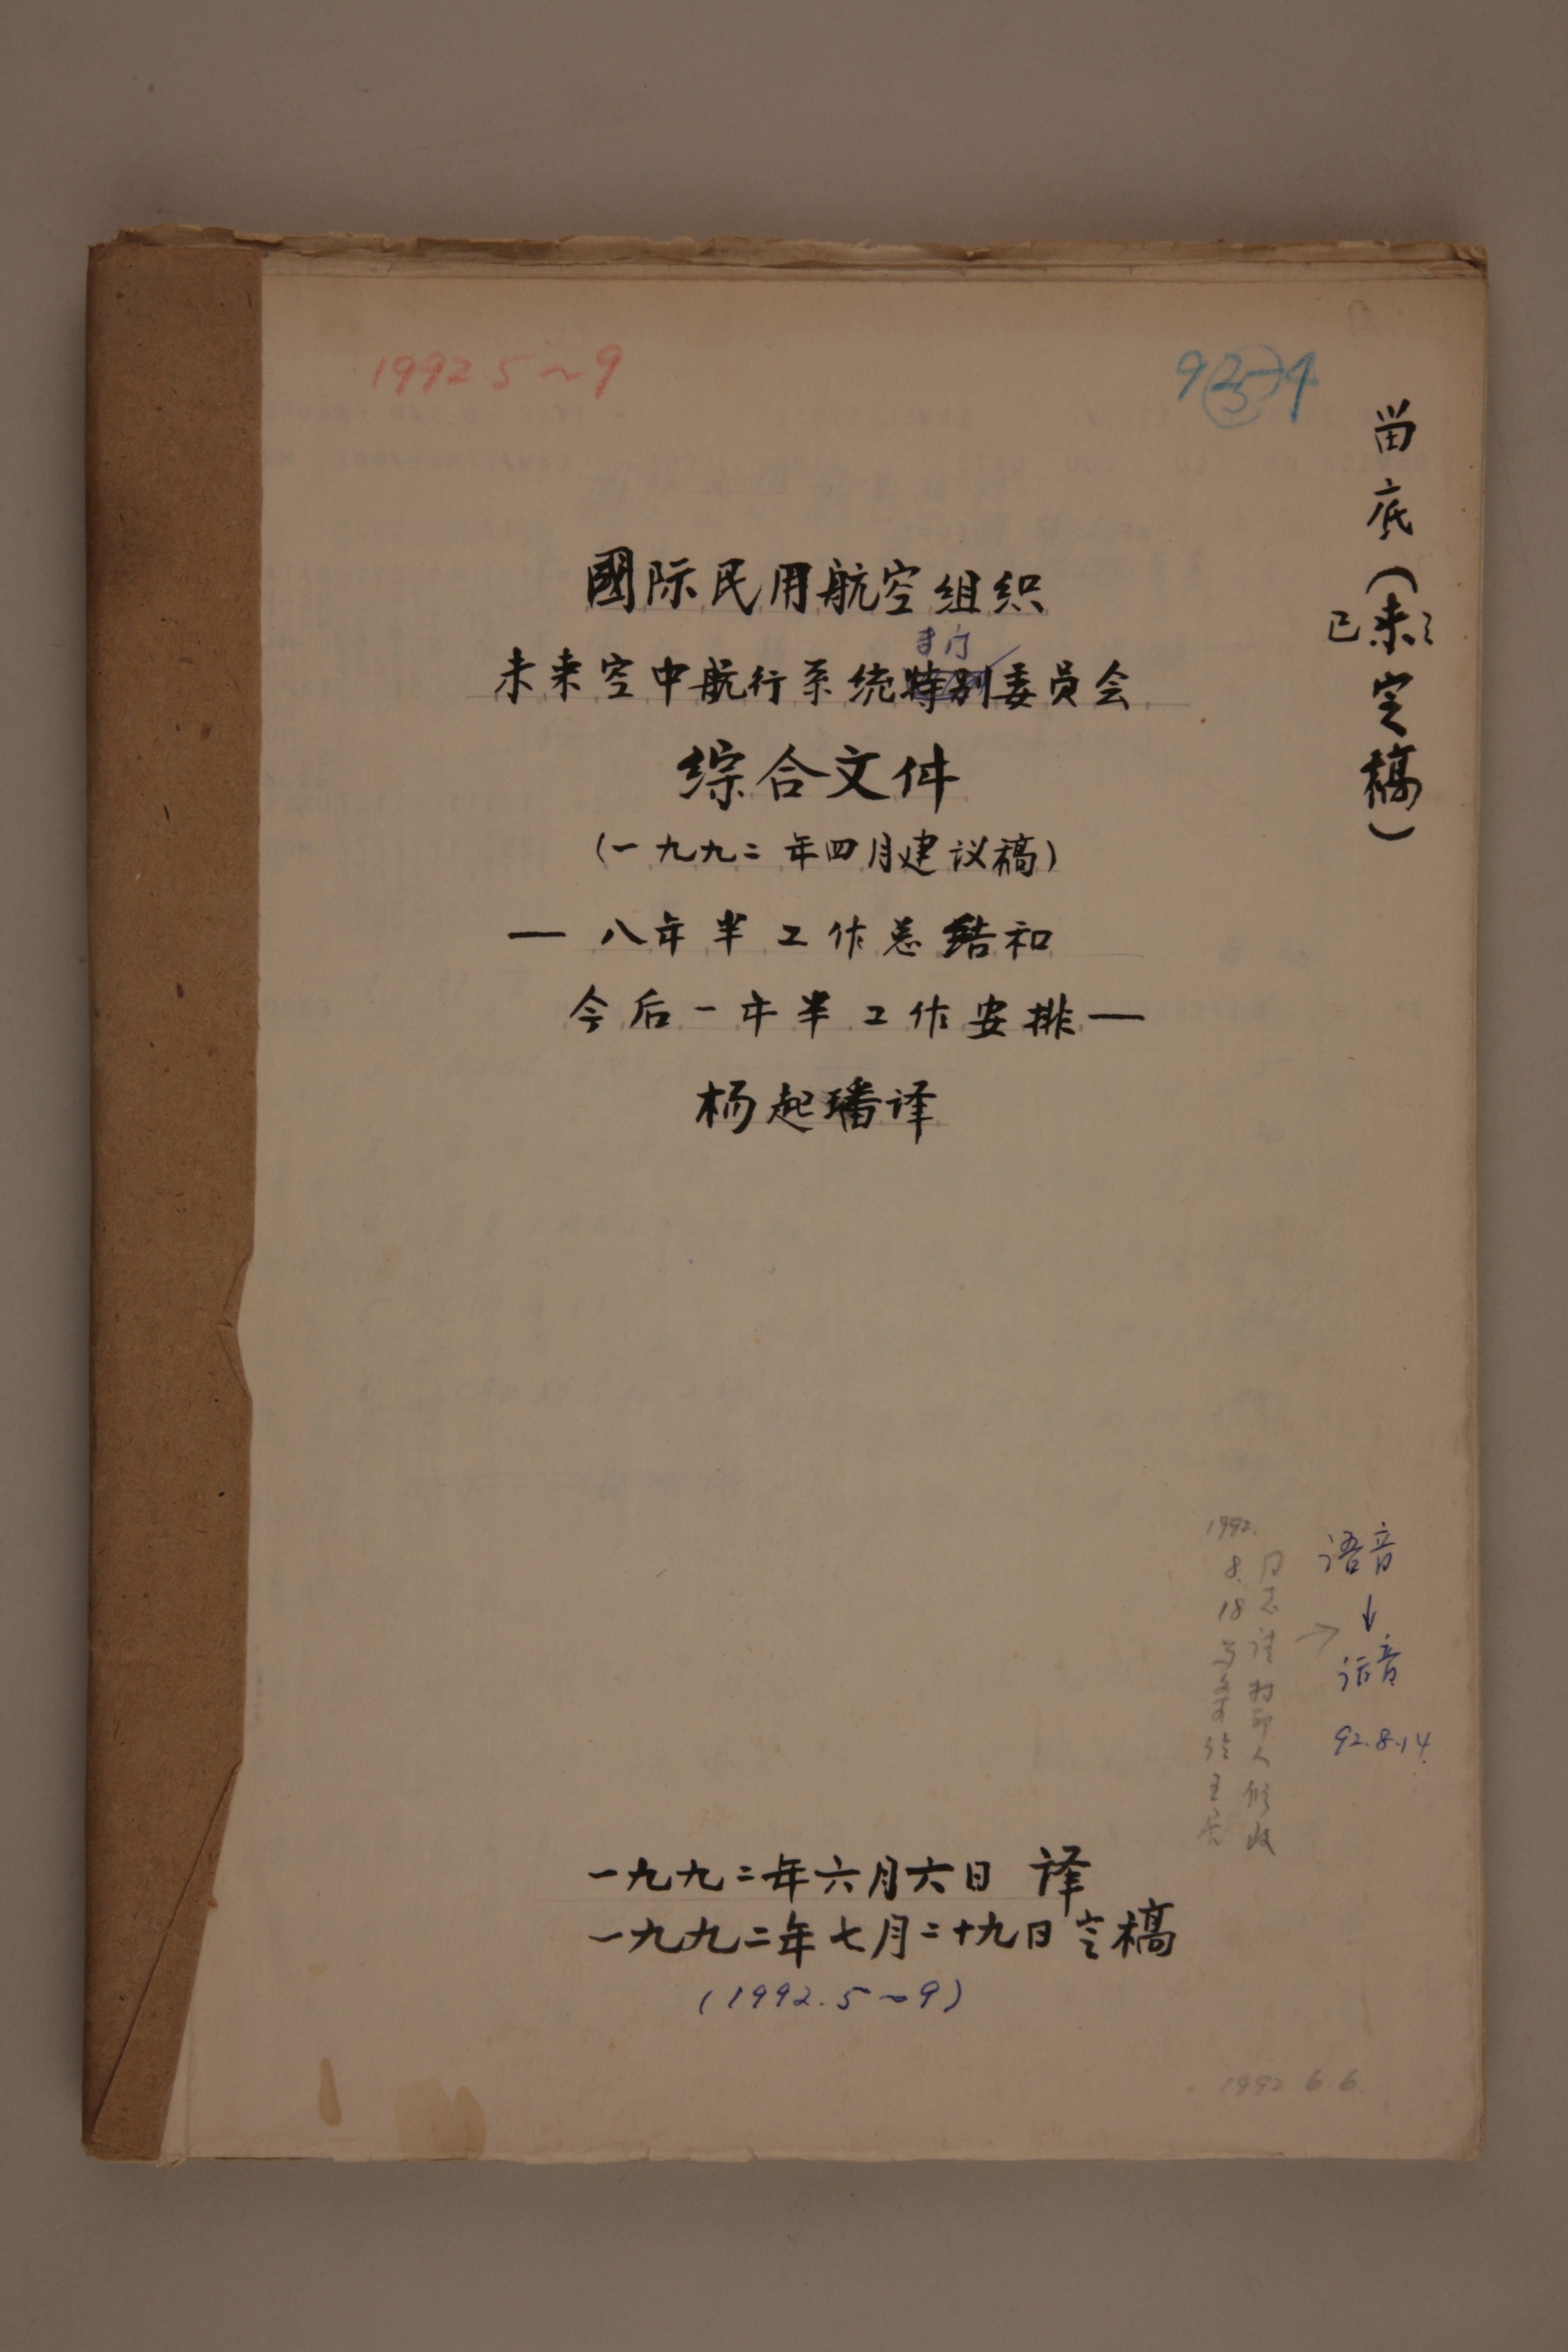 1992.5~9
留底(未定稿)
已
國际民用航空组织
专门
未来空中航行系统特别委员会
综合文件
(一九九二年四月建议稿)
— 八年半工作总结和
今后一年半工作安排 —
杨起璠译
语音
↓
话音
92.8.14
1992.
8.18
同志请打印人修改
一九九二年六月六日 译
一九九二年七月二十九日定稿
(1992.5~9)
1992 6 6